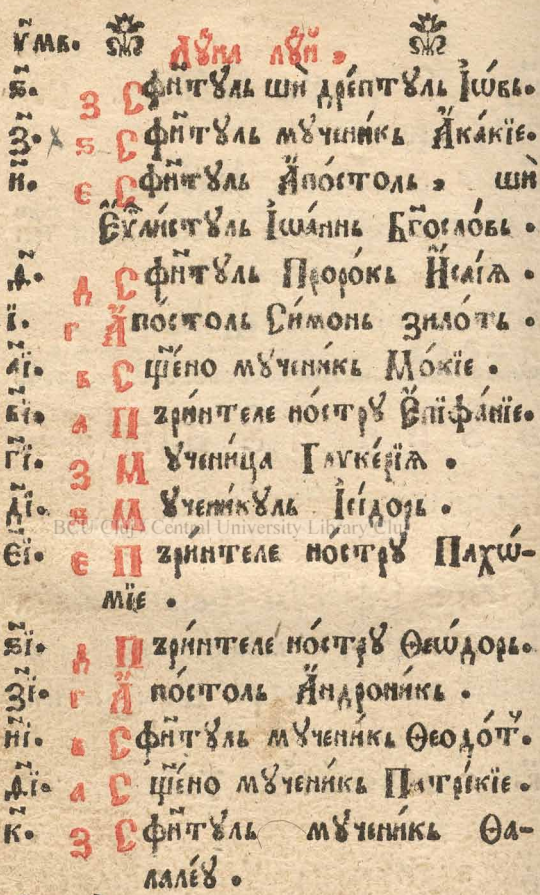 ꙋмв. Лꙋна лꙋй .
ѕ҃. З Сфи҃тꙋль шѝ дре́птꙋль І҆ѡ́вь.
з҃. Ѕ Сфи҃тꙋль мꙋчени́кь А҆ка́кїе.
и҃. Є Сфи҃тꙋль А҆по́столь , шѝ
Є҆ѵ҃ли́стꙋль І҆ѡа́ннь Бг҃осло́вь .
ѳ҃. Д Сфи҃тꙋль Проро́кь И҆са́їѧ .
і҃. Г А҆по́столь Си́монь зило́ть .
аі҃. В Сщ҃е́но мꙋчени́кь Мо́кїе .
ві҃. А Пъри́нтеле но́стрꙋ Є҆пїфа́нїе.
гі҃. З Мꙋчени́ца Глѵке́рїѧ .
ді҃. Ѕ Мꙋчени́кꙋль І҆сі́дорь .
BCU Cluj / Central University Library Cluj
єі҃. Є Пъри́нтеле но́стрꙋ Пахѡ́-
мїе .
ѕі҃. Д Пъри́нтеле но́стрꙋ Ѳеѡ́дорь.
зі҃. Г А҆по́столь А҆ндрони́кь .
иі҃. В Сфи҃тꙋль мꙋчени́кь Ѳеодо́т.
ѳі҃. А Сщ҃е́но мꙋчени́кь Патре́кїе .
к҃. З Сфи҃тꙋль мꙋчени́кь Ѳа-
лале́ꙋ .